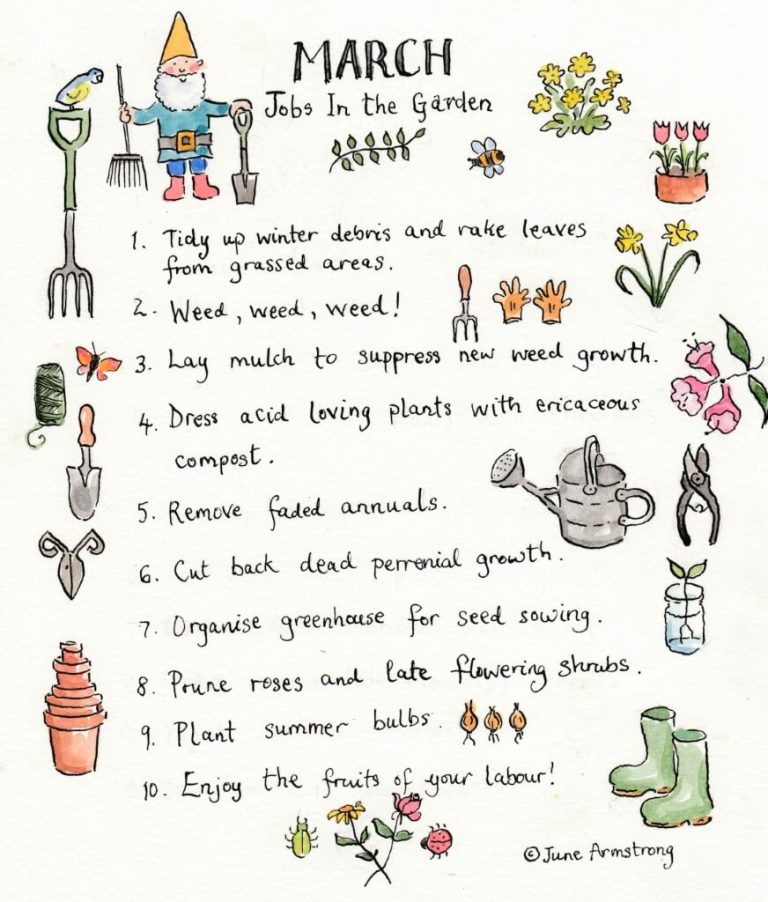 MARCH
Jobs In the Garden
1. Tidy up winter debris and rake leaves
from grassed areas.
2. Weed, weed, weed!
3. Lay mulch to suppress new weed growth.
4. Dress acid loving plants with ericaceous
compost.
5. Remove faded annuals.
6. Cut back dead perrenial growth.
7. Organise greenhouse for seed sowing.
8. Prune roses and late flowering shrubs.
9. Plant summer bulbs.
10. Enjoy the fruits of your labour!
©June Armstrong